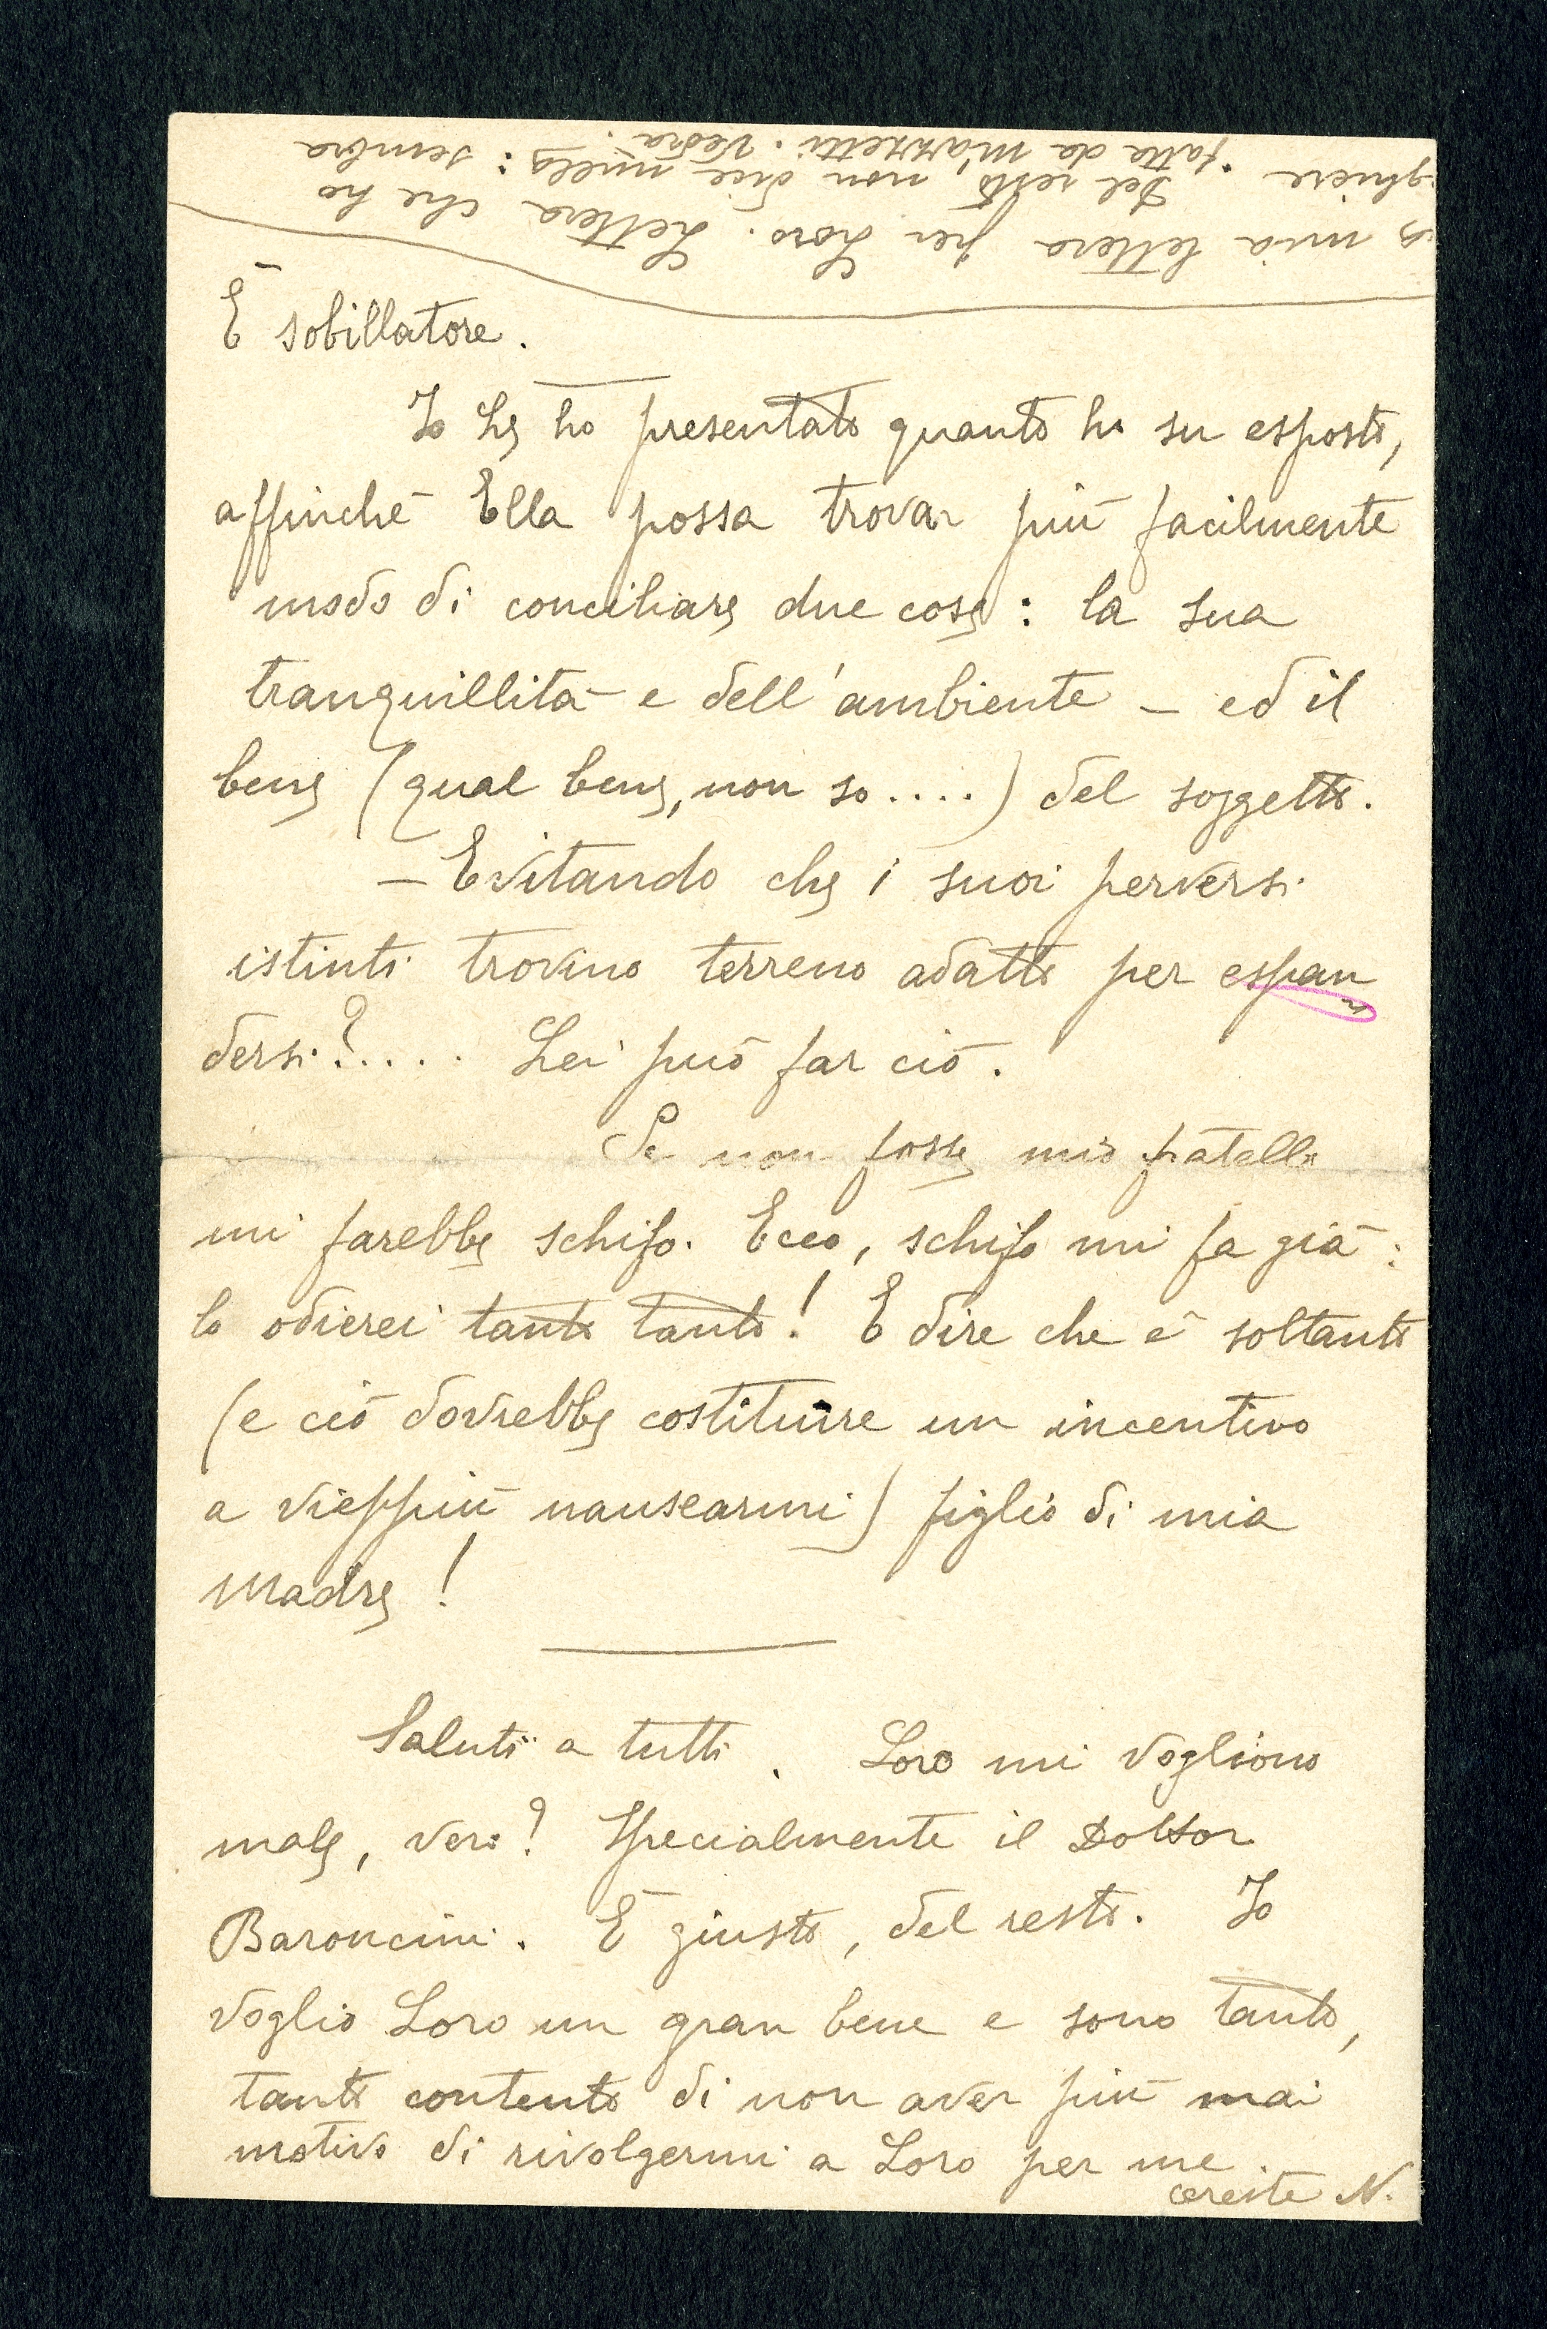 mia lettera per Loro. Lettera che ho
Del resto, non dice nulla: sembra
fatta da Marzetti. Vedrà.
È sobillatore.
Io Le ho presentato quanto ho su esposto,
affinchè Ella possa trovar più facilmente
modo di conciliare due cose: la sua
tranquillità e dell'ambiente – ed il
bene (qual bene, non so....) del soggetto.
– Evitando che i suoi perversi
istinti trovino terreno adatto per espan
dersi?.... Lei può far ciò.
Se non fosse mio fratello
mi farebbe schifo. Ecco, schifo mi fa già:
lo odierei tanto tanto! E dire che è soltanto
(e ciò dovrebbe costituire un incentivo
a vieppiù nausearmi) figlio di mia
madre!
Saluti a tutti. Loro mi vogliono
male, vero? Specialmente il Dottor
Baroncini. È giusto, del resto. Io
voglio Loro un gran bene e sono tanto,
tanto contento di non aver più mai
motivo di rivolgermi a Loro per me.
Oreste N.